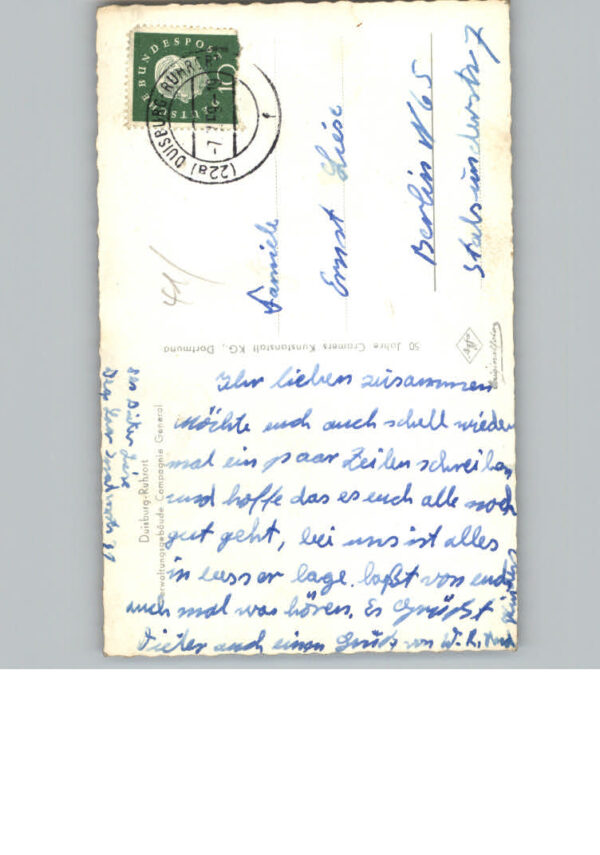 DEUTSCHE BUNDESPOST
10
(22a) DUISBURG-RUHRORT 1
Familie
Ernst Liese
Berlin N 65
Stralsunderstr 7
50 Jahre Cramers Kunstanstalt KG., Dortmund
Agfa
Duisburg-Ruhrort
Verwaltungsgebäude Compagnie General
Ihr lieben zusammen
Möchte euch auch schell wieder
mal ein paar Zeilen schreiben
und hoffe das es euch alle noch
gut geht, bei uns ist alles
in besser lage. laßt von euch
auch mal was hören. Es Grüßt
Dieter auch einen Gruß von W. R. und